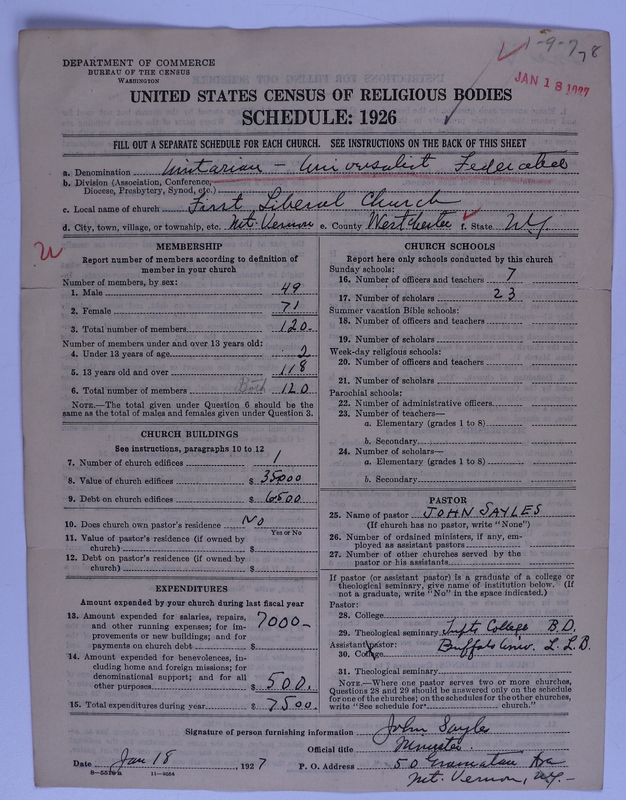 1-9-778
JAN 18 1927
DEPARTMENT OF COMMERCE
BUREAU OF THE CENSUS
WASHINGTON
UNITED STATES CENSUS OF RELIGIOUS BODIES
SCHEDULE: 1926
FILL OUT A SEPARATE SCHEDULE FOR EACH CHURCH. SEE INSTRUCTIONS ON THE BACK OF THIS SHEET
a. Denomination Unitarian - Universalist Federated
b. Division (Association, Conference,
Diocese, Presbytery, Synod, etc.)
c. Local name of church First Liberal Church
d. City, town, village, or township, etc. Mt. Vernon e. County Westchester f. State NY
MEMBERSHIP
Report number of members according to definition of
member in your church
Number of members, by sex:
1. Male 49
2. Female 71
3. Total number of members 120
Number of members under and over 13 years old:
4. Under 13 years of age 2
5. 13 years old and over 118
6. Total number of members Both 120
NOTE.—The total given under Question 6 should be the
same as the total of males and females given under Question 3.
CHURCH BUILDINGS
See instructions, paragraphs 10 to 12
7. Number of church edifices 1
8. Value of church edifices $ 35000
9. Debt on church edifices $ 6500
10. Does church own pastor's residence No
Yes or No
11. Value of pastor's residence (if owned by
church) $
12. Debt on pastor's residence (if owned by
church) $
EXPENDITURES
Amount expended by your church during last fiscal year
13. Amount expended for salaries, repairs,
and other running expenses; for im-
provements or new buildings; and for
payments on church debt $ 7000-
14. Amount expended for benevolences, in-
cluding home and foreign missions; for
denominational support; and for all
other purposes $ 500.
15. Total expenditures during year $ 7500
CHURCH SCHOOLS
Report here only schools conducted by this church
Sunday schools:
16. Number of officers and teachers 7
17. Number of scholars 23
Summer vacation Bible schools:
18. Number of officers and teachers
19. Number of scholars
Week-day religious schools:
20. Number of officers and teachers
21. Number of scholars
Parochial schools:
22. Number of administrative officers
23. Number of teachers—
a. Elementary (grades 1 to 8)
b. Secondary
24. Number of scholars—
a. Elementary (grades 1 to 8)
b. Secondary
PASTOR
25. Name of pastor JOHN SAYLES
(If church has no pastor, write "None")
26. Number of ordained ministers, if any, em-
ployed as assistant pastors
27. Number of other churches served by the
pastor or his assistants
If pastor (or assistant pastor) is a graduate of a college or
theological seminary, give name of institution below. (If
not a graduate, write "No" in the space indicated.)
Pastor:
28. College
29. Theological seminary Tufts College B.D.
Assistant pastor: Buffalo Univ. L.L.B.
30. College
31. Theological seminary
NOTE.—Where one pastor serves two or more churches,
Questions 28 and 29 should be answered only on the schedule
for one of the churches; on the schedules for the other churches,
write "See schedule for church."
Signature of person furnishing information John Sayles
Official title Minister
Date Jan 18, 1927 P. O. Address 50 Gramatan Ave
Mt. Vernon, NY-
8-5518 a 11-4084